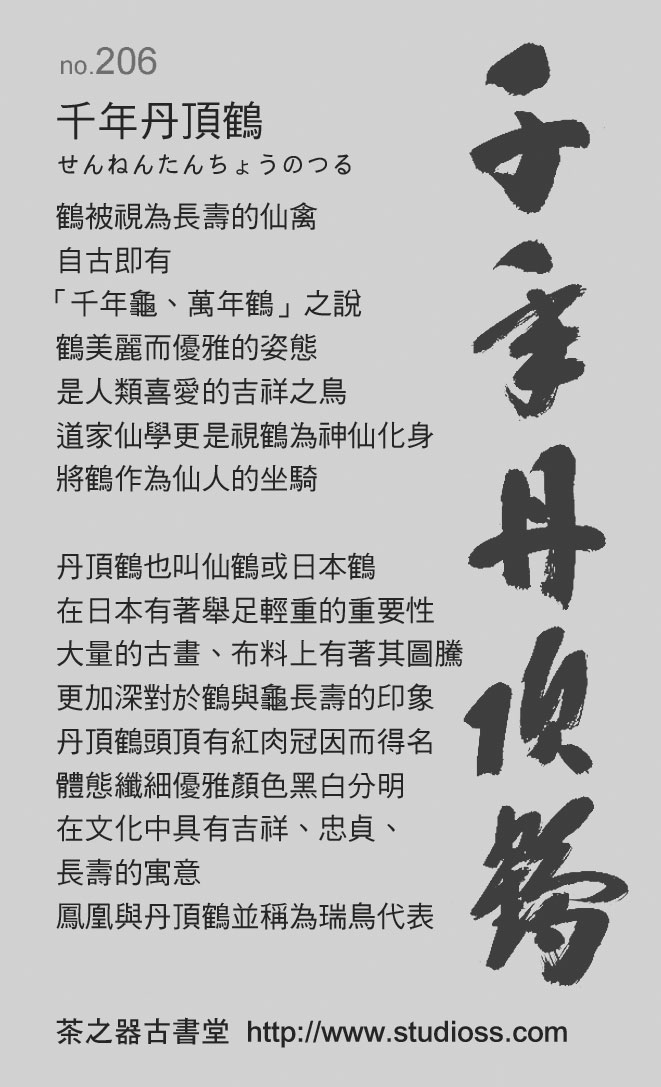 no.206
千年丹頂鶴
せんねんたんちょうのつる
鶴被視為長壽的仙禽
自古即有
「千年龜、萬年鶴」之說
鶴美麗而優雅的姿態
是人類喜愛的吉祥之鳥
道家仙學更是視鶴為神仙化身
將鶴作為仙人的坐騎
丹頂鶴也叫仙鶴或日本鶴
在日本有著舉足輕重的重要性
大量的古畫、布料上有著其圖騰
更加深對於鶴與龜長壽的印象
丹頂鶴頭頂有紅肉冠因而得名
體態纖細優雅顏色黑白分明
在文化中具有吉祥、忠貞、
長壽的寓意
鳳凰與丹頂鶴並稱為瑞鳥代表
茶之器古書堂 http://www.studioss.com
千年丹頂鶴